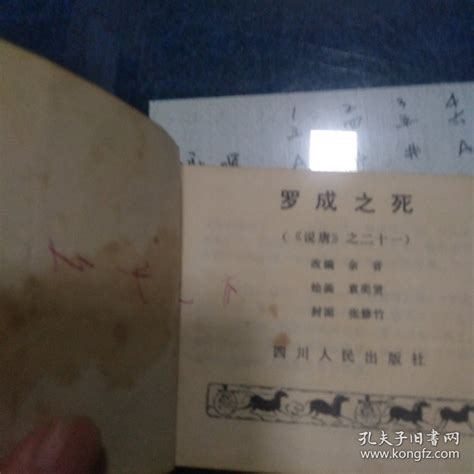 1 2 3 4
罗成之死
(《说唐》之二十一)
改编 余音
绘画 袁奕贤
封面 张修竹
四川人民出版社
孔夫子旧书网
www.kongfz.com